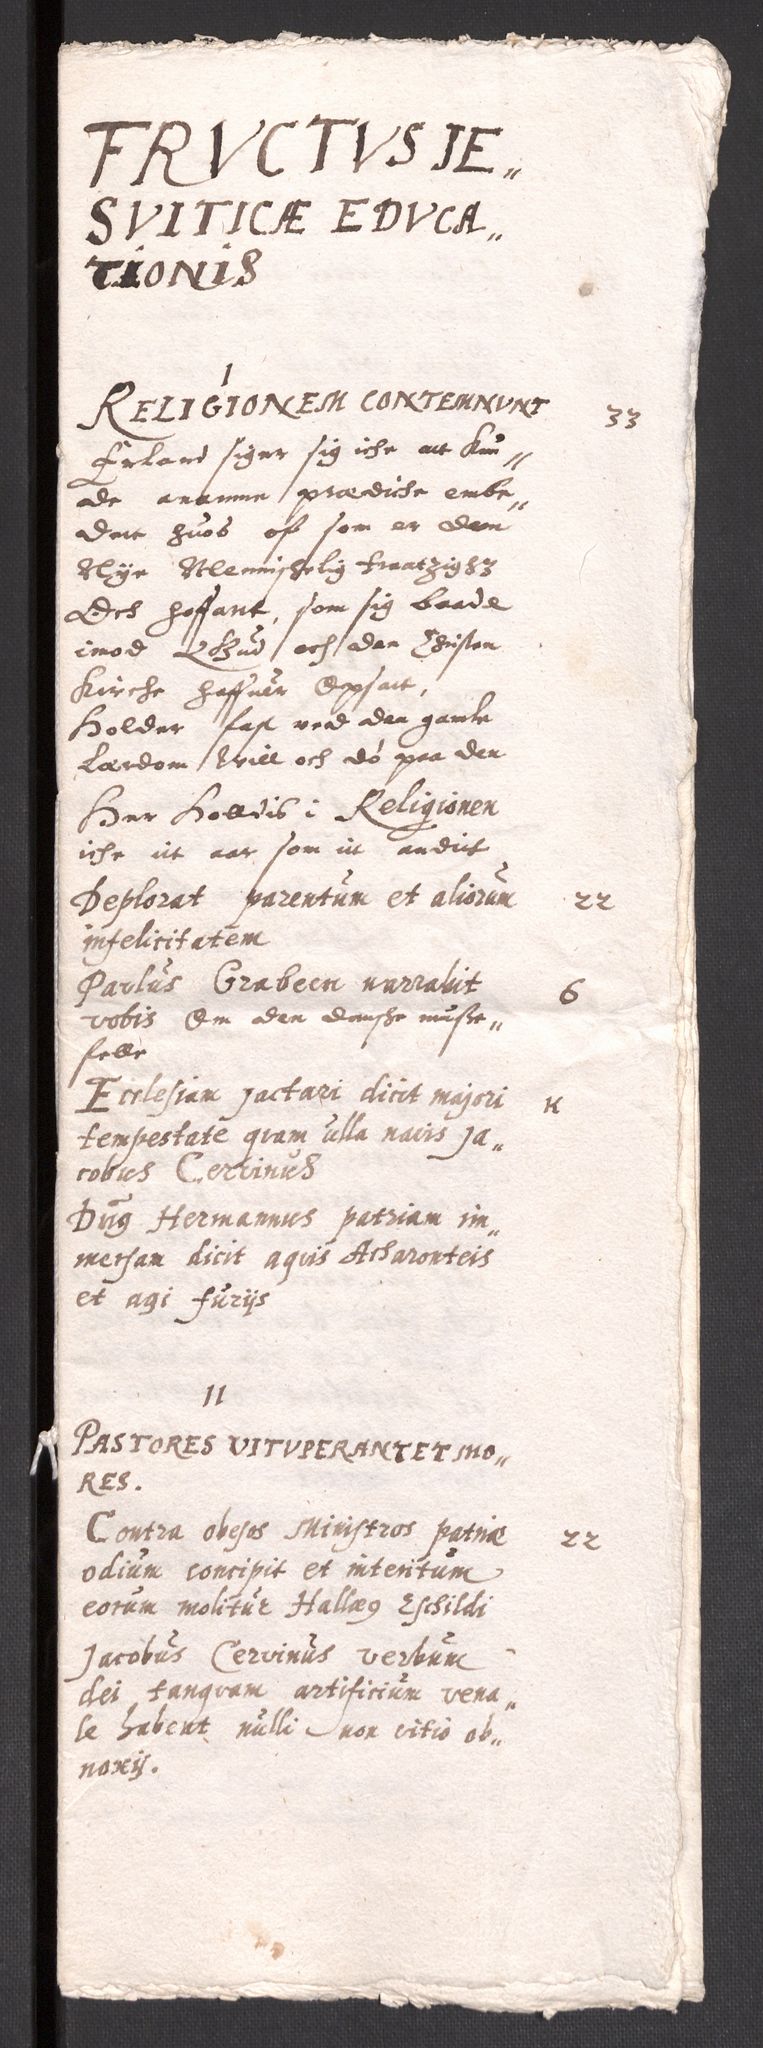 FRVCTVS IE„
SVITICÆ EDVCA„
TIONIS
I
RELIGIONEM CONTEMNVNT 33
Erland siger sig iche att kun„
de anamme prædiche embe„
dett huos oss som er dem
Nye Menniskelig
Och hoffart, som sig baade
imod Gud och den Christen
Kirche haffuer Opsatt,
Holder fast ved den gamle
Lærdom Vill och dö paa den
Her i Religionen
iche it aar som it andit
Deplorat parentum et aliorum 22
infelicitatem
Paulus Grabeen narrabit 6
vobis Om den danske musse„
felle
Ecclesiam jactari dicit majori H
tempestate qvam ulla navis Ja„
cobus Cervinus
Dn̄g Hermannus patriam im„
mersam dicit aqvis Acharonteis
et agi furijs
II
PASTORES VITVPERANT ET MO„
RES.
Contra obesos Ministros patriæ 22
odium concipit et interitum
eorum molitur Hallæg Eschildi
Jacobus Cervinus verbum
dei tanqvam artificium vena„
le habent nulli non vitio ob„
noxij.